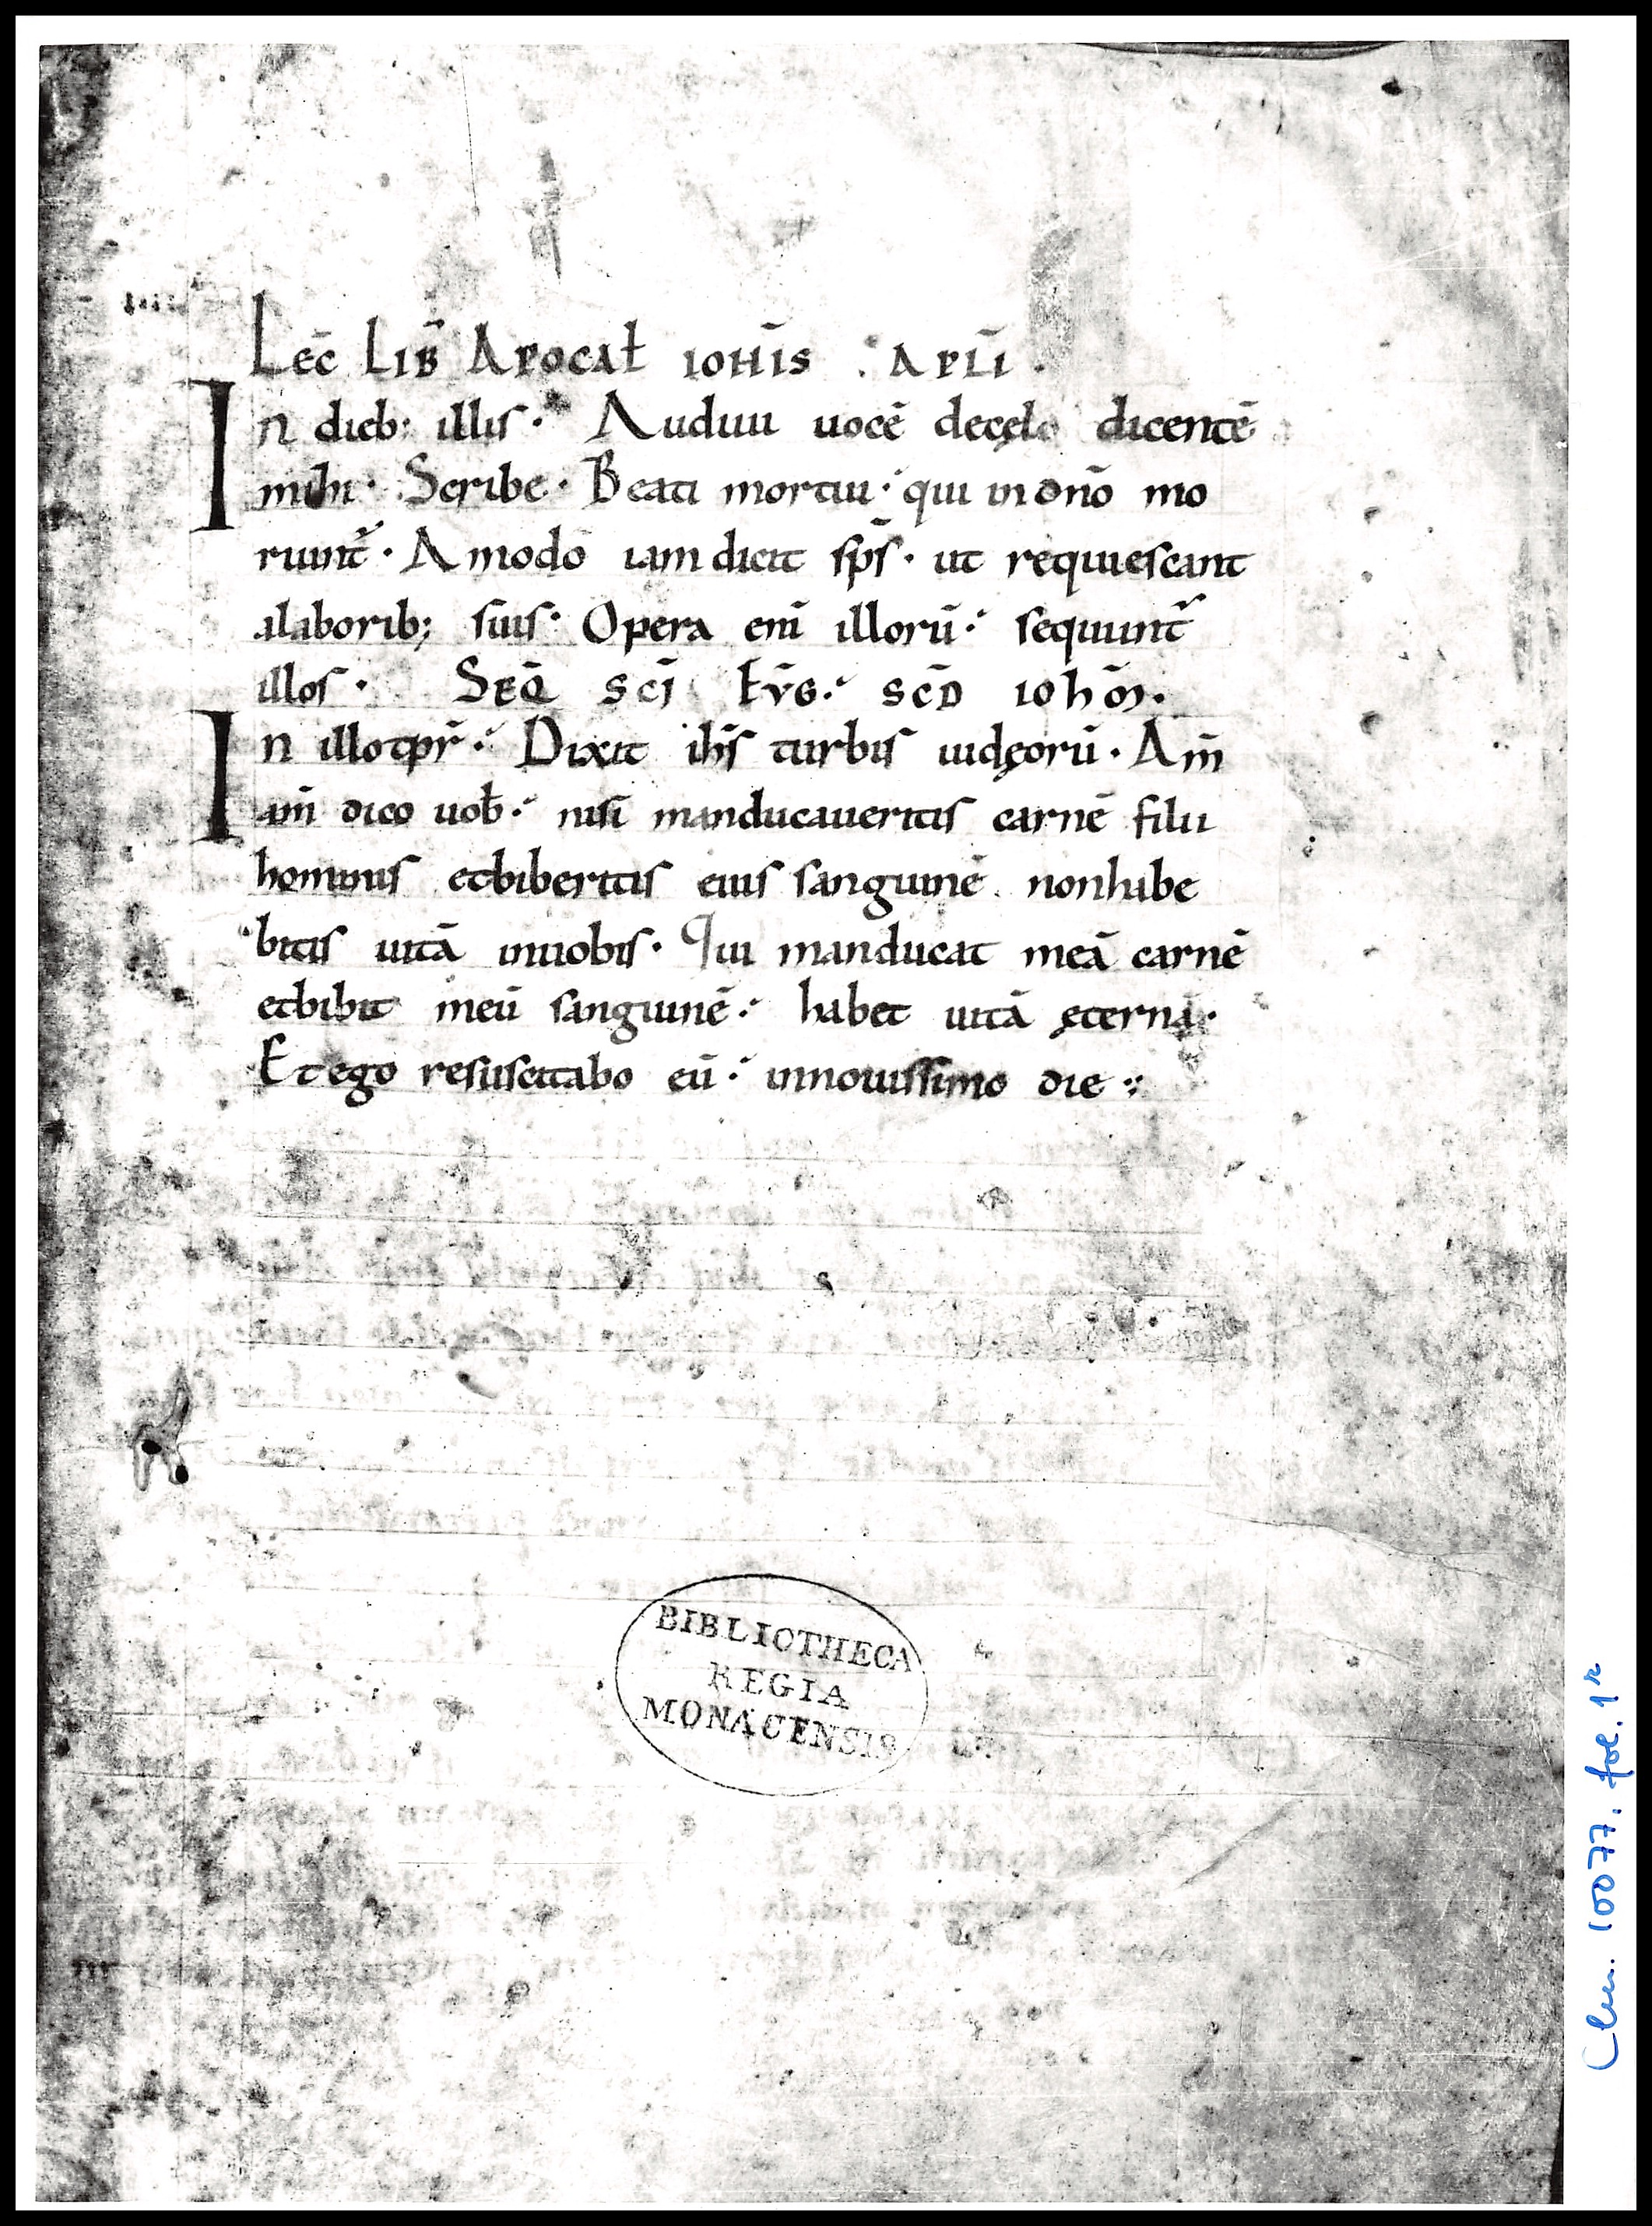 Lec̄ Lib̄ Apocal̄ iohīs apl̄i.
In dieb: illis· Audiui uocē decęlo dicentē
mihi· Scribe· Beati mortui· qui indn̄o mo
riunt̄· Amodo iam dicit sp̄s· ut requiescant
alaborib; suis· Opera eni̅ illorū· sequunt̄
illos· Seq̄ sc̄i Ev̄g· sc̄d iohōn̄.
In illotp̄r· Dixit ih̄s turbis iudęorū· Am̄
am̄ dico uob̄· nisi manducaueritis carnē filii
hominis etbiberitis eius sanguinē nonhabe
bitis uitā inuobis· Qui manducat meā carnē
etbibit meū sanguinē· habet uitā ęternā·
Et ego resuscitabo eū· innouissimo die
BIBLIOTHECA
REGIA
MONACENSIS
Clm. 10077. fol. 1r